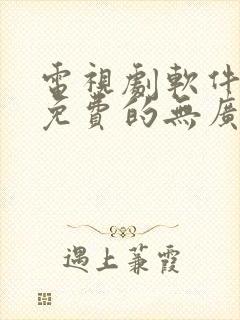 電視劇軟件
免費的無廣
遇上蒹霞